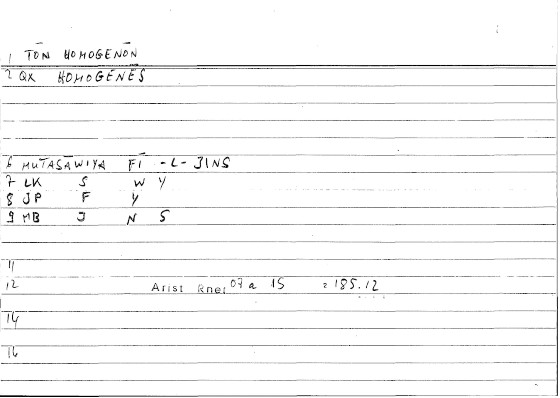 1 TŌN HOMOGENŌN
2 QX HOMOGENĒS
6 MUTASĀWIYA FĪ -L- JINS
7 LK S W Y
8 JP F Y
9 MB J N S
11
12 Arist Rhet 07 a 15 = 185.12
14
16